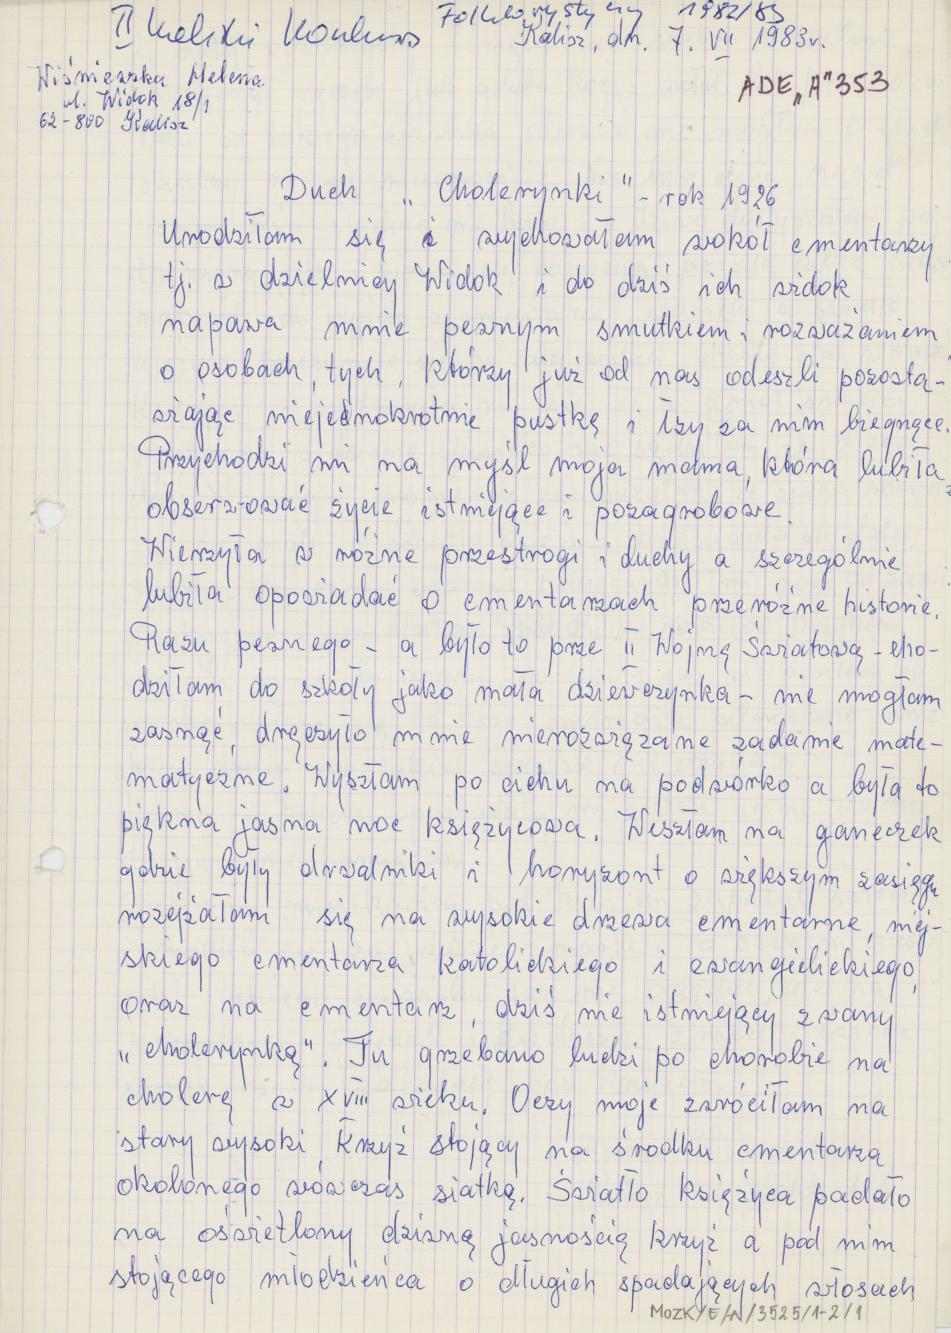 II Kaliski Konkurs Folklorystyczny 1982/83
Kalisz, dn. 7. VII 1983r.
Wiśniewska Helena
ul. Widok 18/1
62-800 Kalisz
ADE „A" 353
Duch „Cholerynki" - rok 1926
Urodziłam się i wychowałam wokół cmentarzy
tj. w dzielnicy Widok i do dziś ich widok
napawa mnie pewnym smutkiem i rozważaniem
o osobach, tych, którzy już od nas odeszli pozosta-
wiając niejednokrotnie pustkę i łzy za nim biegnące.
Przychodzi mi na myśl moja mama, która lubiła
obserwować życie istniejące i pozagrobowe.
Wierzyła w różne przestrogi i duchy a szczególnie
lubiła opowiadać o cmentarzach przeróżne historie.
Razu pewnego - a było to prze II Wojną Światową - cho-
dziłam do szkoły jako mała dziewczynka - nie mogłam
zasnąć, dręczyło mnie nierozwiązane zadanie mate-
matyczne. Wyszłam po cichu na podwórko a była to
piękna jasna noc księżycowa. Weszłam na ganeczek
gdzie były drwalniki i horyzont o większym zasięgu
rozejżałam się na wysokie drzewa cmentarne, miej-
skiego cmentarza katolickiego i ewangielickiego,
oraz na cmentarz, dziś nie istniejący zwany
„cholerynką". Tu grzebano ludzi po chorobie na
cholerę w XVIII wieku. Oczy moje zwróciłam na
stary wysoki Krzyż stojący na środku cmentarza
okolonego wówczas siatką. Światło księżyca padało
na oświetlony dziwną jasnością krzyż a pod nim
stojącego młodzieńca o długich spadających włosach
MOZK/E/A/3525/1-2/1